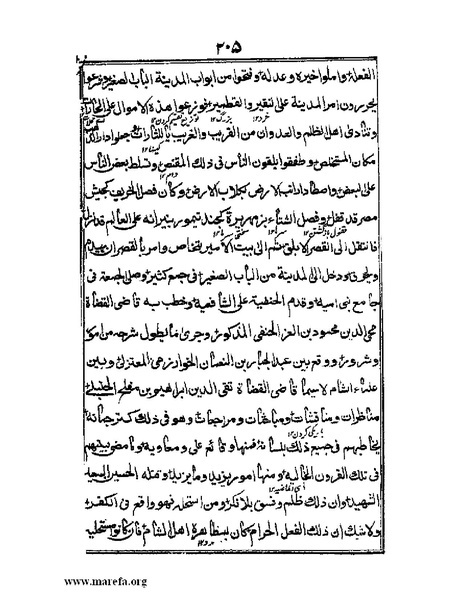 ٢٠٥
الفعلة واملوا خيره وعدله وفتحوا من ابواب المدينة الباب الصغير وشرعوا
يحررون امر المدينة على النقير والقطمير ووزعوا هذه الاموال على الحارات
وتنادى اهل الظلم والعدوان من القريب والغريب يا للثارات وجعلوا دار الذهب
مكان المستخلص وطفقوا يلقون الناس فى ذلك المقتنص وتسلط بعض الناس
على البعض واصطاد اراذب الارض بكلاب الارض وكان فصل الخريف كجيش
مصر قد قفل وفصل الشتاء بزمهريره كجند تيمور بنيرانه على العالم قد نزل
فانتقل الى القصر الابلق ثم الى بيت الامير بتخاص وامر بالقصر ان يهدم
ويحرق ودخل الى المدينة من الباب الصغير فى جمع كثير وصلى الجمعة فى
جامع بنى امية وقدم الحنفية على الشافعية وخطب به قاضى القضاة
محى الدين محمود بن العز الحنفى المذكور وجرى ما يطول شرحه من امور
وشرور ووقع بين عبد الجبار بن النعمان الخوارزمى المعتزلى وبين
علماء الشام لا سيما قاضى القضاة تقى الدين ابراهيم بن مفلح الحنبلى
مناظرات ومناقشات ومباحثات ومراجعات وهو فى ذلك كترجمانه
يخاطبهم فى جميع ذلك بلسانه فمنها وقائع على ومعاوية وما مضى بينهم
فى تلك القرون الخالية ومنها امور يزيد وما يزيد وقتله الحسين السعيد
الشهيد وان ذلك ظلم وفسق بلا نكر ومن استحله فهو واقع فى الكفر
ولا شك ان ذلك الفعل الحرام كان بمظاهرة اهل الشام فان كانوا مستحليه
www.marefa.org